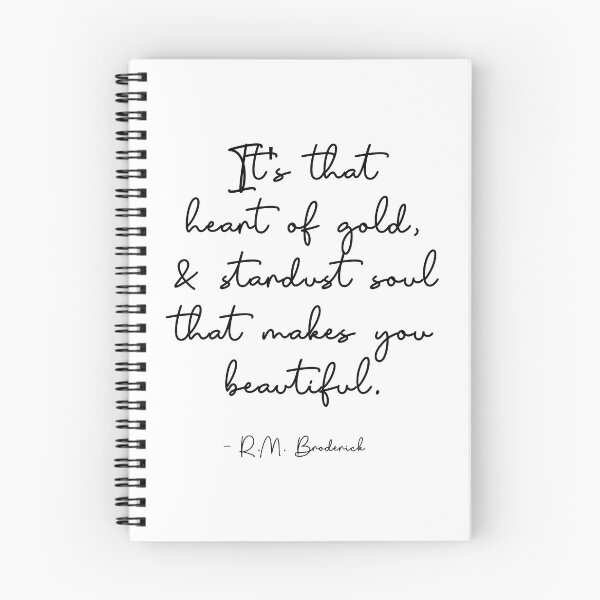 It's that
heart of gold,
& stardust soul
that makes you
beautiful.
- R.M. Broderick